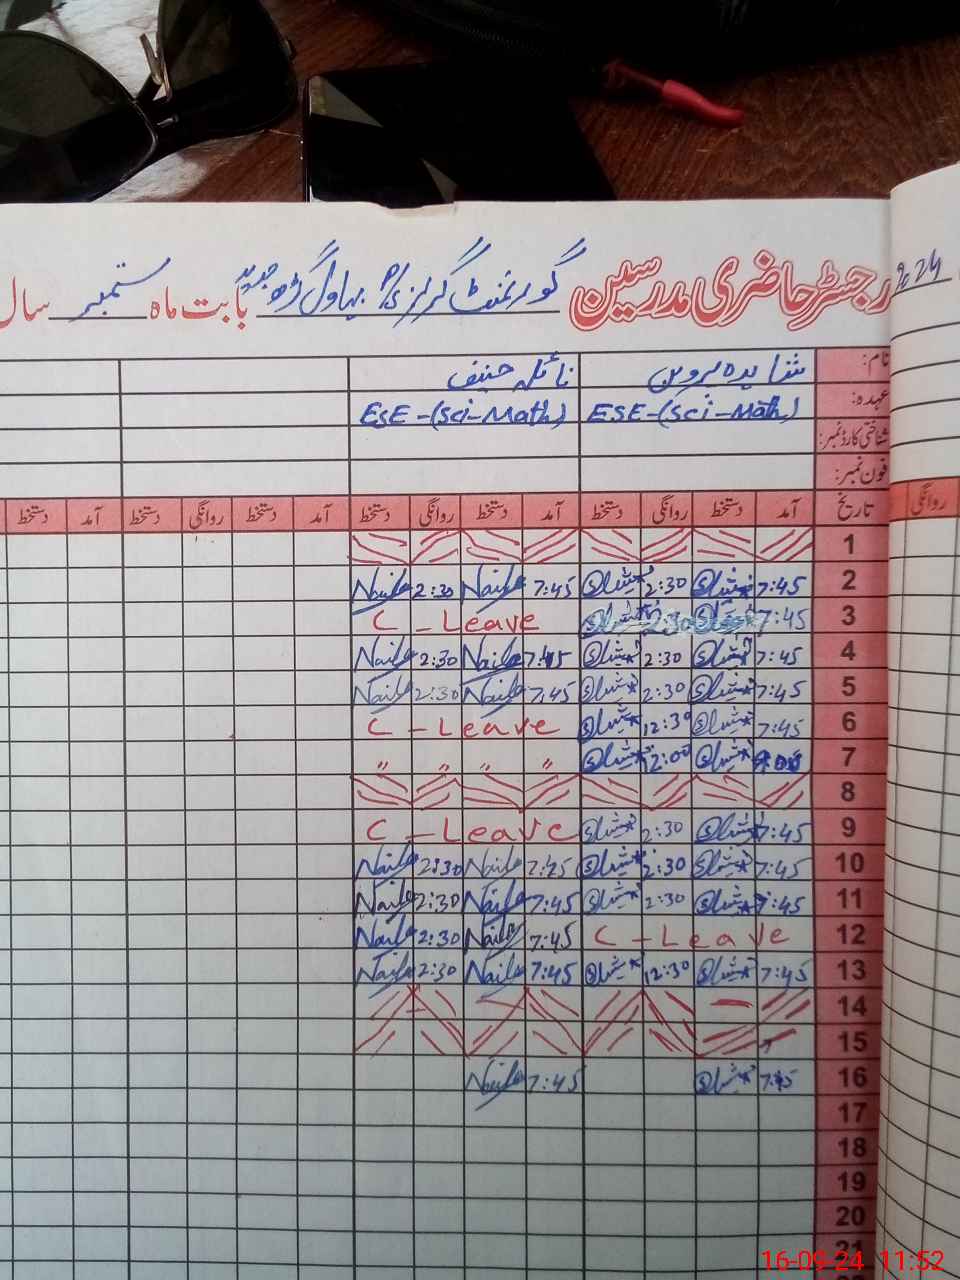 رجسٹر حاضری مدرسین گورنمنٹ گرلز بہاول گڑھ جدید بابت ماہ ستمبر سال
نام: شاہدہ پروین نائلہ حنیف
عہدہ: ESE-(Sci-Math) ESE-(Sci-Math)
شناختی کارڈ نمبر:
فون نمبر:
تاریخ آمد دستخط روانگی دستخط آمد دستخط روانگی دستخط آمد دستخط روانگی دستخط آمد دستخط روانگی
1
2 7:45 2:30 7:45 Naila 2:30 Naila
3 7:45 2:30 C - Leave
4 7:45 2:30 7:45 Naila 2:30 Naila
5 7:45 2:30 7:45 Naila 2:30 Naila
6 7:45 12:30 C - Leave
7 12:00 " " " "
8
9 7:45 2:30 C - Leave
10 7:45 2:30 7:45 Naila 2:30 Naila
11 7:45 2:30 7:45 Naila 2:30 Naila
12 C - Leave 7:45 Naila 2:30 Naila
13 7:45 12:30 7:45 Naila 2:30 Naila
14
15
16 7:45 7:45 Naila
17
18
19
20
21
16-09-24 11:52